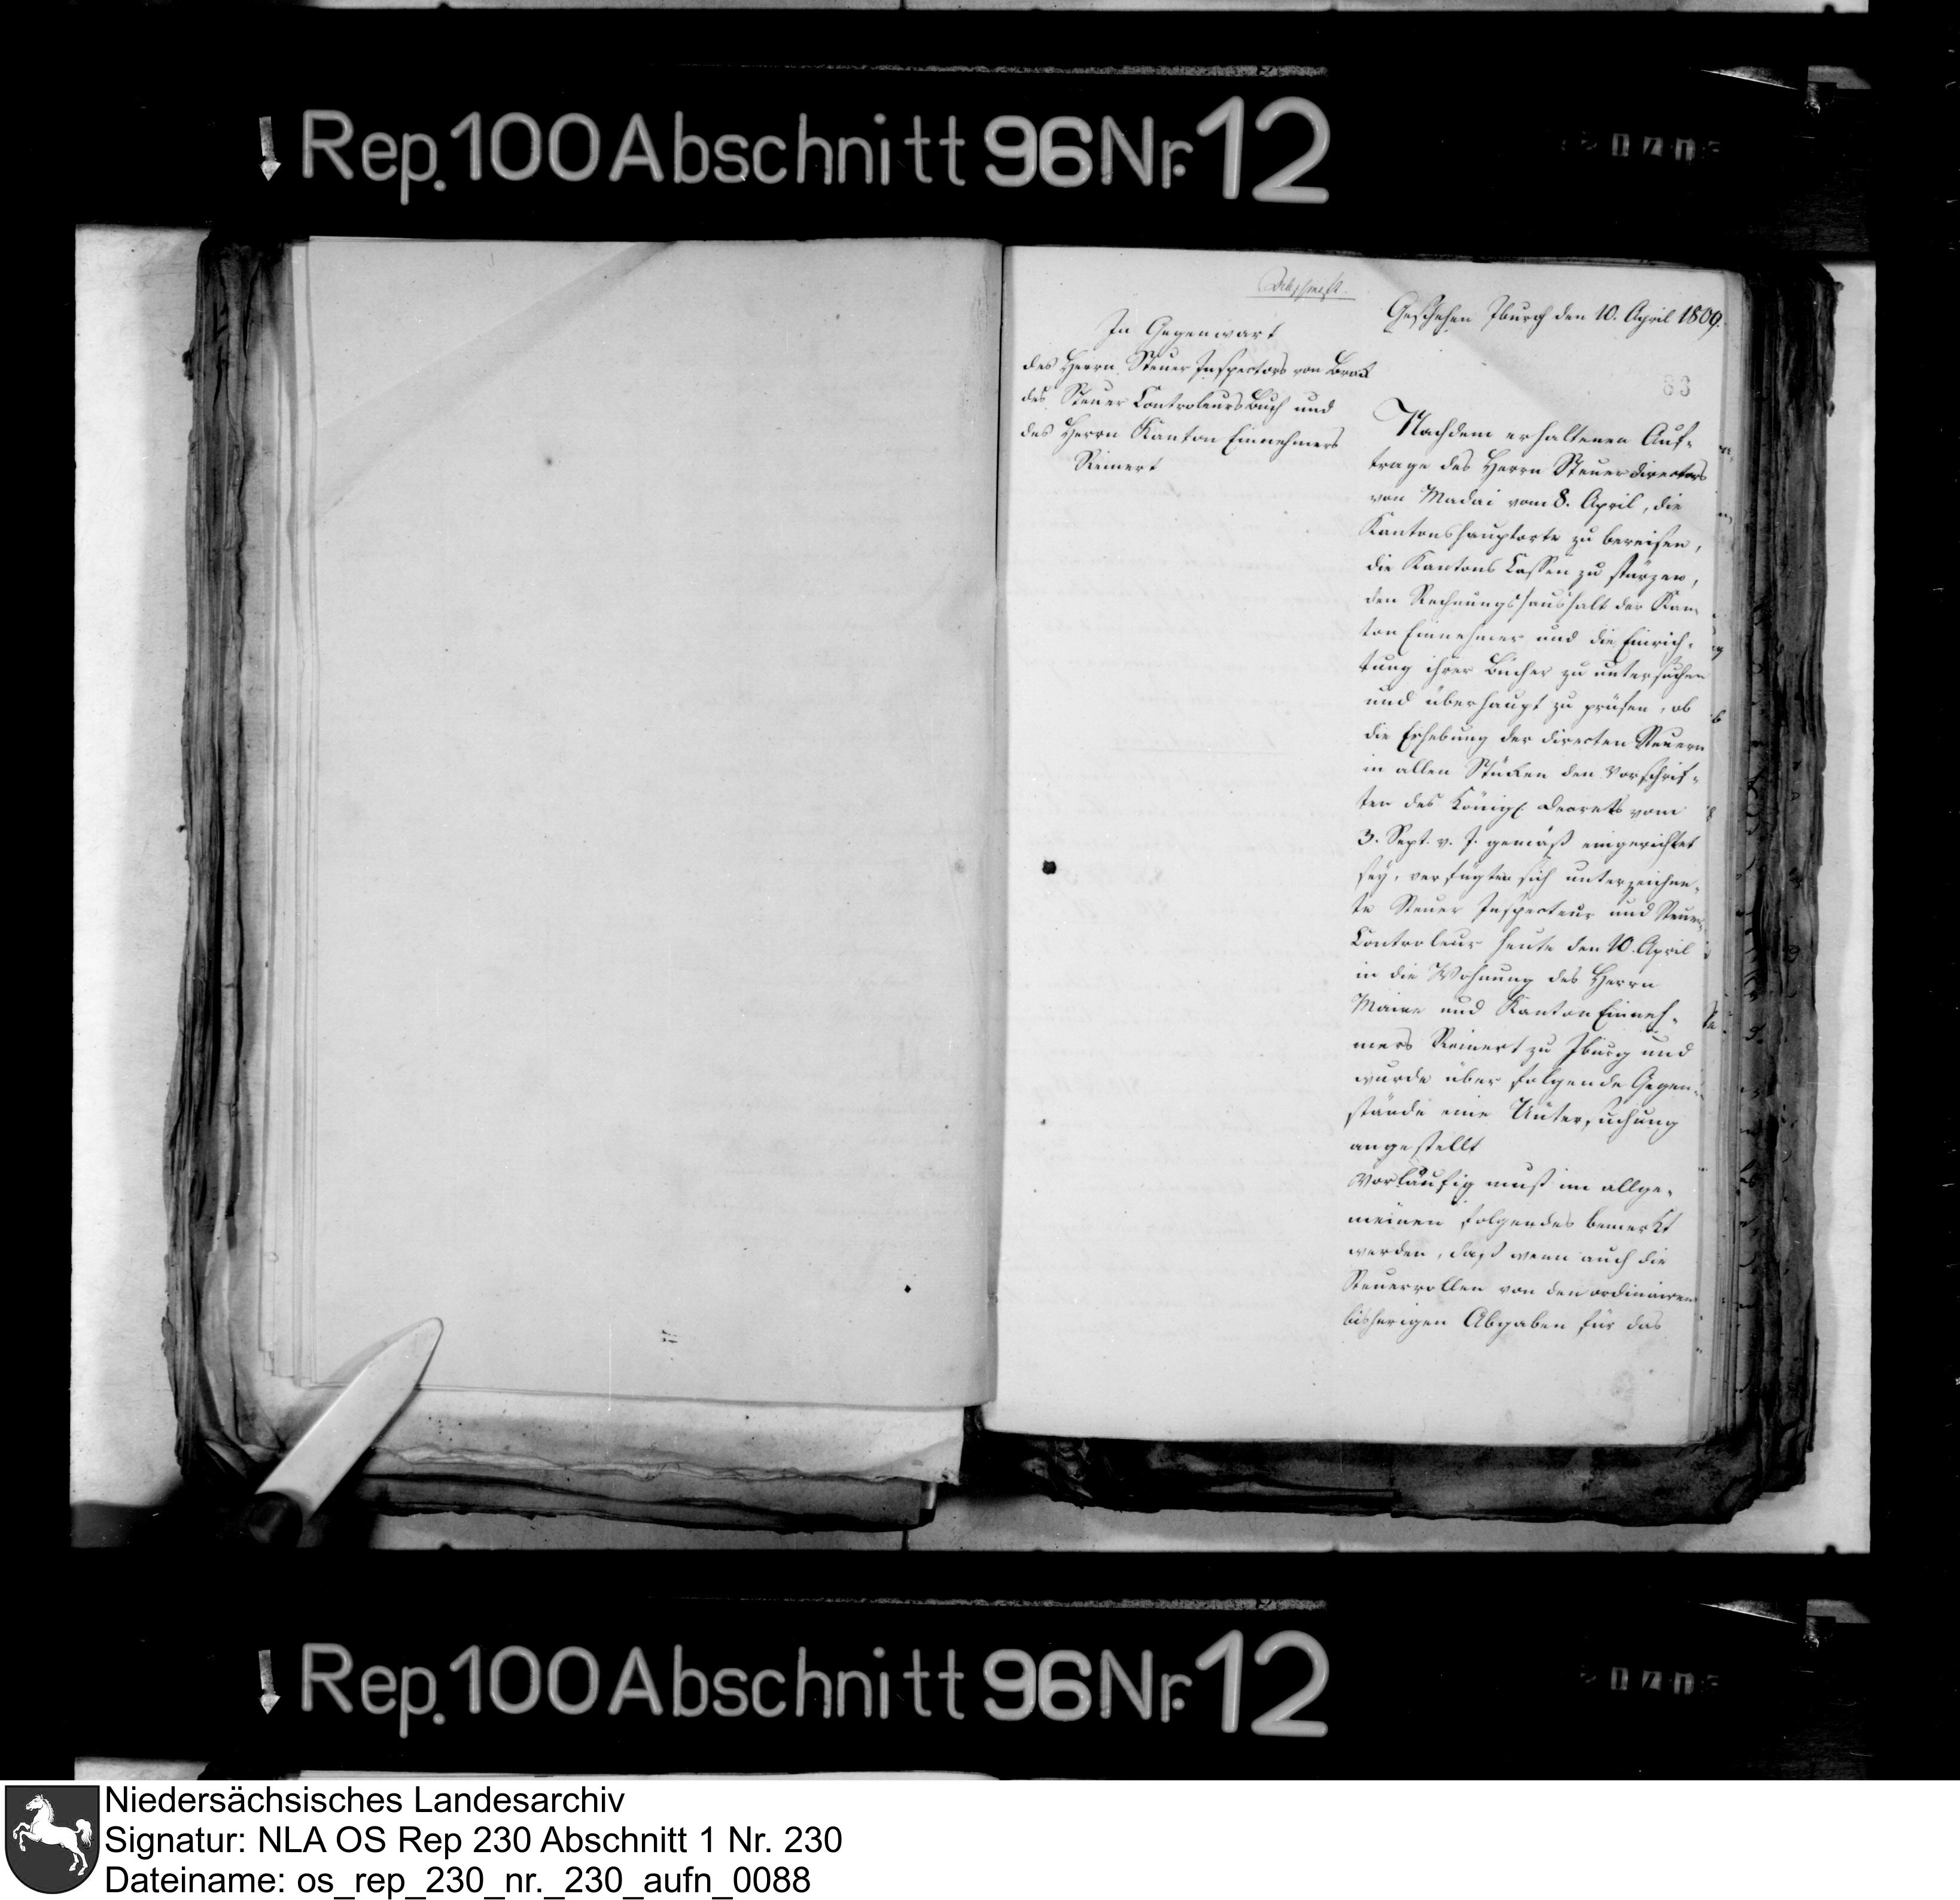 Rep. 100 Abschnitt 96 Nr. 12
Abschrift.
Geschehen Iburg den 10. April 1809.
In Gegenwart
des Herrn Steuer Inspectors von Brak
des Steuer Controleurs Buch und
des Herrn Kanton Einnehmers
Reinert
83
Nachdem erhaltenen Auf-
trage des Herrn Steuerdirectors
von Madai vom 8. April, die
Kantonshauptorte zu bereisen,
die Kantons Cassen zu stürzen,
den Rechnungshaushalt der Kan-
ton Einnehmer und die Einrich-
tung ihrer Bücher zu untersuchen
und überhaupt zu prüfen, ob
die Erhebung der directen Steuern
in allen Stücken den Vorschrif-
ten des Königl. Decrets vom
3. Sept. v. J. gemäß eingerichtet
sey, verfügten sich unterzeichne-
te Steuer Inspecteur und Steuer
Controleur heute den 10. April
in die Wohnung des Herrn
Maire und Kanton Einneh-
mers Reinert zu Iburg und
wurde über folgende Gegen-
stände eine Untersuchung
angestellt
Vorläufig muß im allge-
meinen folgendes bemerkt
werden, daß wenn auch die
Steuerrollen von den ordinairen
bisherigen Abgaben für das
Rep. 100 Abschnitt 96 Nr. 12
Niedersächsisches Landesarchiv
Signatur: NLA OS Rep 230 Abschnitt 1 Nr. 230
Dateiname: os_rep_230_nr._230_aufn_0088